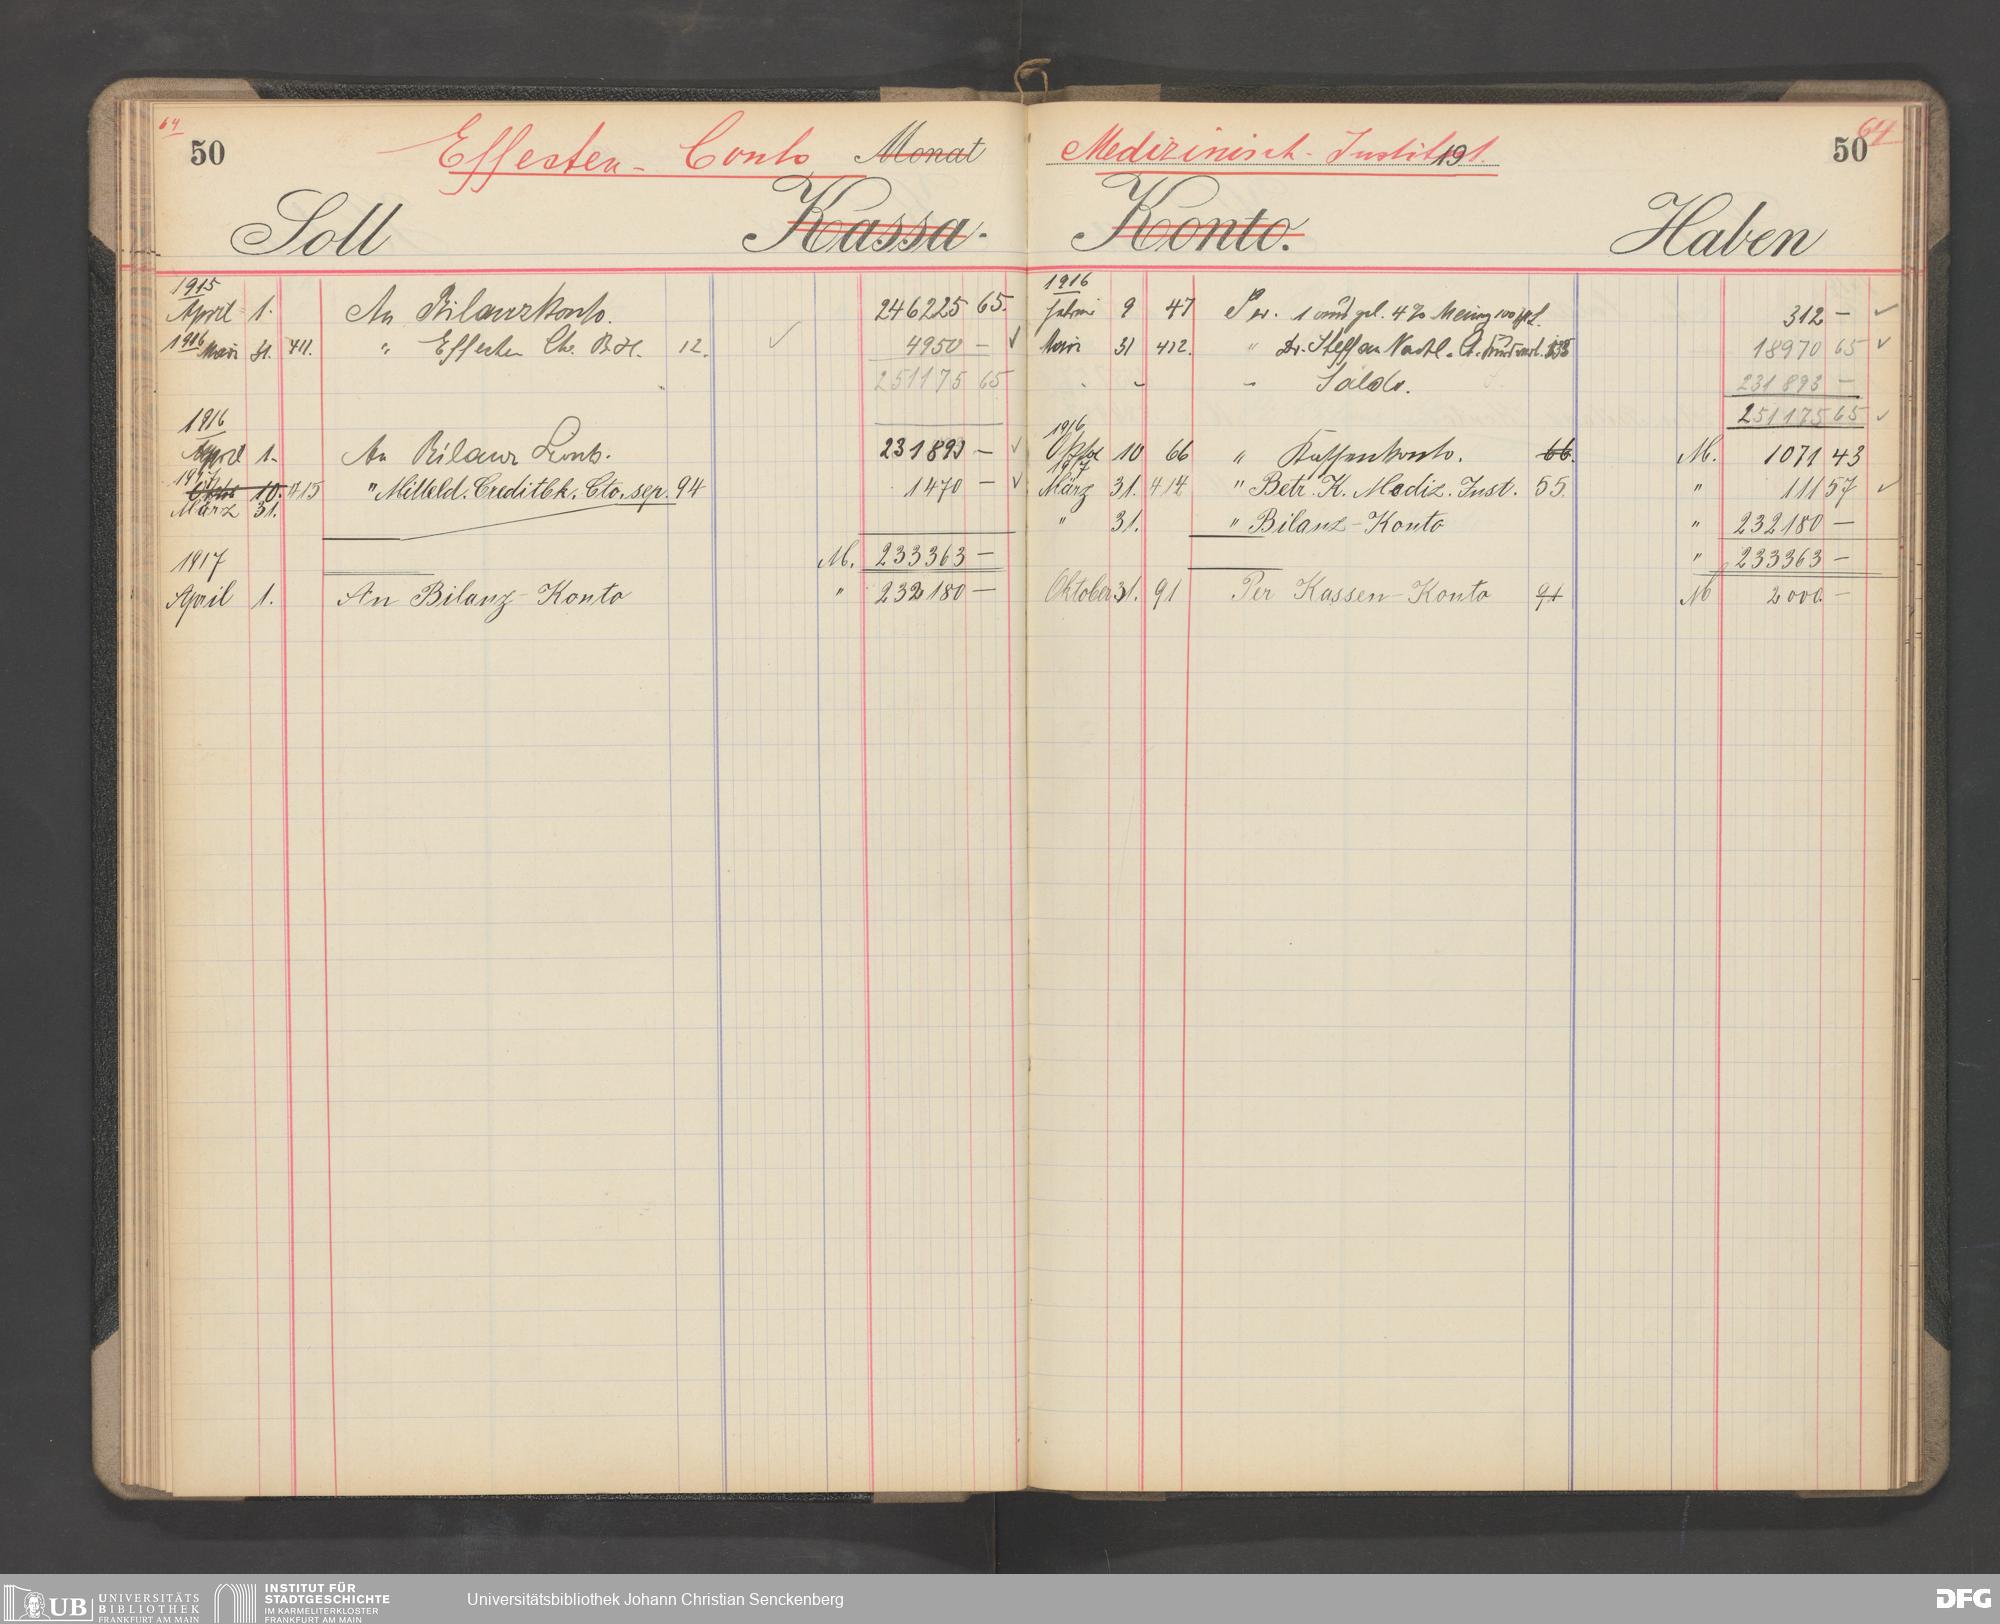 64
50
Effecten-Conto Monat
Soll Kassa-
1915
April 1. An Bilanzkonto. 246225 65.
1916 März 31. 411. " Effecten Cto. B 12. 4950 —
251175 65
1916
April 1. An Bilanz Conto. 231893 —
1917
10. 415 " Mitteld. Creditbk. Cto. sep. 94 1470 —
März 31.
M. 233363 —
1917
April 1. An Bilanz-Konto " 232180 —
Medizinisch-Institut 191
64
50
Konto. Haben
1916
9 47 Per. 1 4% 312 —
März 31 412. " Dr. Steffan Nachl. 18970 65
" " " Saldo. 231893 —
251175 65
1916
10 66 " Kassenkonto. 66. M. 1071 43
1917
März 31. 414 " Betr. K. Mediz. Inst. 55. " 111 57
" 31. " Bilanz-Konto " 232180 —
" 233363 —
Oktober 31. 91 Per Kassen-Konto 91 M 2000. —
UB UNIVERSITÄTS
BIBLIOTHEK
FRANKFURT AM MAIN
INSTITUT FÜR
STADTGESCHICHTE
IM KARMELITERKLOSTER
FRANKFURT AM MAIN
Universitätsbibliothek Johann Christian Senckenberg
DFG